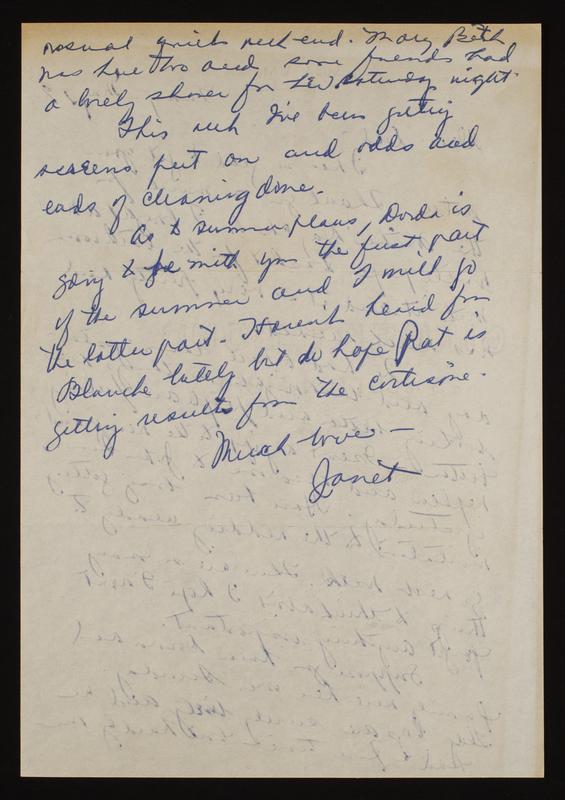 usual quiet week-end. Mary Beth
was here too and some friends had
a lovely shower for her Saturday night.
This week I've been getting
screens put on and odds and
ends of cleaning done.
As to summer plans, Dorda is
going to be with you the first part
of the summer and I will go
the latter part. Haven't heard from
Blanche lately but do hope Pat is
getting results from the cortisone.
Much love —
Janet